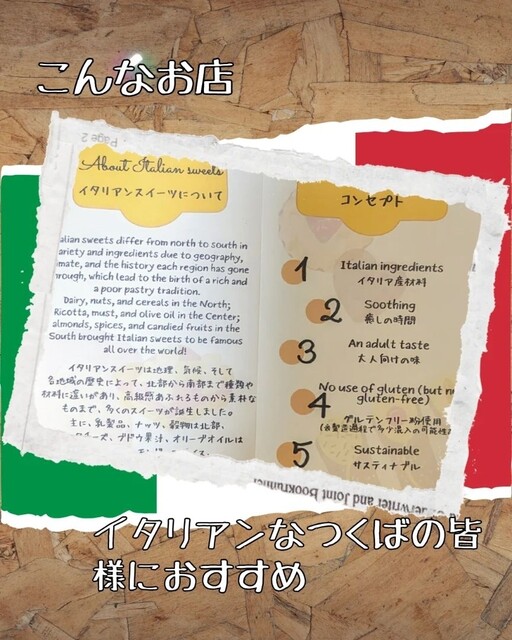 こんなお店
Page 2
About Italian sweets
イタリアンスイーツについて
alian sweets differ from north to south in
ariety and ingredients due to geography,
mate, and the history each region has gone
rough, which lead to the birth of a rich and
a poor pastry tradition.
Dairy, nuts, and cereals in the North;
Ricotta, must, and olive oil in the Center;
almonds, spices, and candied fruits in the
South brought Italian sweets to be famous
all over the world!
イタリアンスイーツは地理、気候、そして
各地域の歴史によって、北部から南部まで種類や
材料に違いがあり、高級感あふれるものから素朴な
ものまで、多くのスイーツが誕生しました。
主に、乳製品、ナッツ、穀物は北部、
チーズ、ブドウ果汁、オリーブオイルは
コンセプト
1 Italian ingredients
イタリア産材料
2 Soothing
癒しの時間
3 An adult taste
大人向けの味
4 No use of gluten (but no
gluten-free)
グルテンフリー粉使用
5 Sustainable
サスティナブル
erwriter and Joint Bookrunner
イタリアンなつくばの皆
様におすすめ